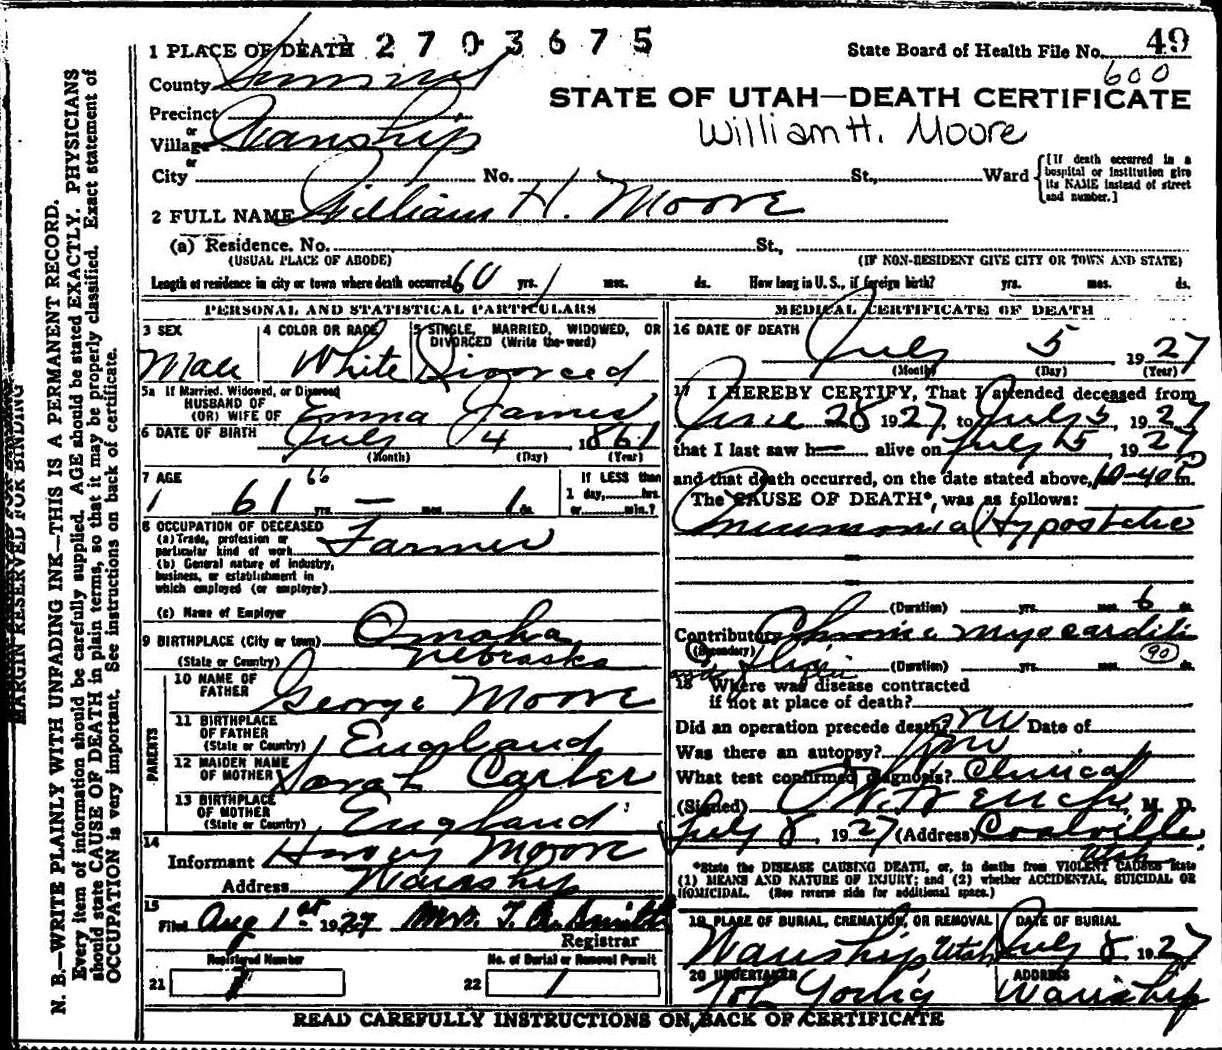 1 PLACE OF DEATH 2 7 0 3 6 7 5
State Board of Health File No. 49
600
County Summit
STATE OF UTAH—DEATH CERTIFICATE
Precinct
William H. Moore
or
Village Wanship
or
City No. St., Ward
[If death occurred in a
hospital or institution give
its NAME instead of street
and number.]
2 FULL NAME William H. Moore
(a) Residence. No. St.,
(USUAL PLACE OF ABODE) (IF NON-RESIDENT GIVE CITY OR TOWN AND STATE)
Length of residence in city or town where death occurred 60 yrs. 1 mos. ds. How long in U. S., if foreign birth? yrs. mos. ds.
PERSONAL AND STATISTICAL PARTICULARS
3 SEX Male
4 COLOR OR RACE White
5 SINGLE, MARRIED, WIDOWED, OR
DIVORCED (Write the word)
Divorced
5a If Married, Widowed, or Divorced
HUSBAND OF
(OR) WIFE OF Emma James
6 DATE OF BIRTH July 4, 1861
(Month) (Day) (Year)
7 AGE 66
1 61 yrs. — mos. 1 ds.
If LESS than
1 day, hrs.
or min.?
8 OCCUPATION OF DECEASED
(a) Trade, profession or
particular kind of work Farmer
(b) General nature of industry,
business, or establishment in
which employed (or employer)
(c) Name of Employer
9 BIRTHPLACE (City or town) Omaha
(State or Country) Nebraska
PARENTS
10 NAME OF
FATHER George Moore
11 BIRTHPLACE
OF FATHER
(State or Country) England
12 MAIDEN NAME
OF MOTHER Sarah Carter
13 BIRTHPLACE
OF MOTHER
(State or Country) England
14
Informant Harvey Moore
Address Wanship
15
Filed Aug 1st 1927 Mrs. T. A. Smith
Registrar
Registered Number
21 7
No. of Burial or Removal Permit
22 1
MEDICAL CERTIFICATE OF DEATH
16 DATE OF DEATH
July 5, 1927
(Month) (Day) (Year)
17 I HEREBY CERTIFY, That I attended deceased from
June 28 1927, to July 5, 1927
that I last saw h— alive on July 5, 1927
and that death occurred, on the date stated above, 10-40 P m.
The CAUSE OF DEATH*, was as follows:
Pneumonia (Hypostatic
(Duration) yrs. mos. 6 ds.
Contributory Chronic Myocarditi
(Secondary) 90
(Duration) yrs. mos. ds.
18 Where was disease contracted
if not at place of death?
Did an operation precede death? no Date of
Was there an autopsy? no
What test confirmed diagnosis? Clinical
(Signed) M. D.
July 8, 1927 (Address) Coalville
Utah
*State the DISEASE CAUSING DEATH, or, in deaths from VIOLENT CAUSES state
(1) MEANS AND NATURE OF INJURY; and (2) whether ACCIDENTAL, SUICIDAL OR
HOMICIDAL. (See reverse side for additional space.)
19 PLACE OF BURIAL, CREMATION, OR REMOVAL DATE OF BURIAL
Wanship Utah July 8 1927
20 UNDERTAKER ADDRESS
Wanship
READ CAREFULLY INSTRUCTIONS ON BACK OF CERTIFICATE
MARGIN RESERVED FOR BINDING
N. B.—WRITE PLAINLY WITH UNFADING INK—THIS IS A PERMANENT RECORD.
Every item of information should be carefully supplied. AGE should be stated EXACTLY. PHYSICIANS
should state CAUSE OF DEATH in plain terms, so that it may be properly classified. Exact statement of
OCCUPATION is very important. See instructions on back of certificate.